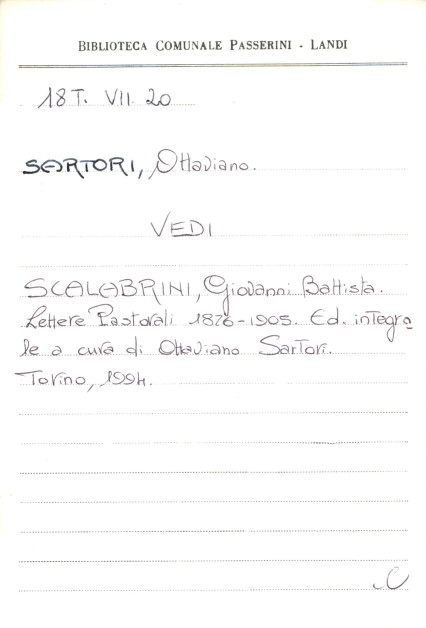 BIBLIOTECA COMUNALE PASSERINI - LANDI
18 T. VII. 20
SARTORI, Ottaviano.
VEDI
SCALABRINI, Giovanni Battista.
Lettere Pastorali 1876-1905. Ed. integra
le a cura di Ottaviano Sartori.
Torino, 1994.
C